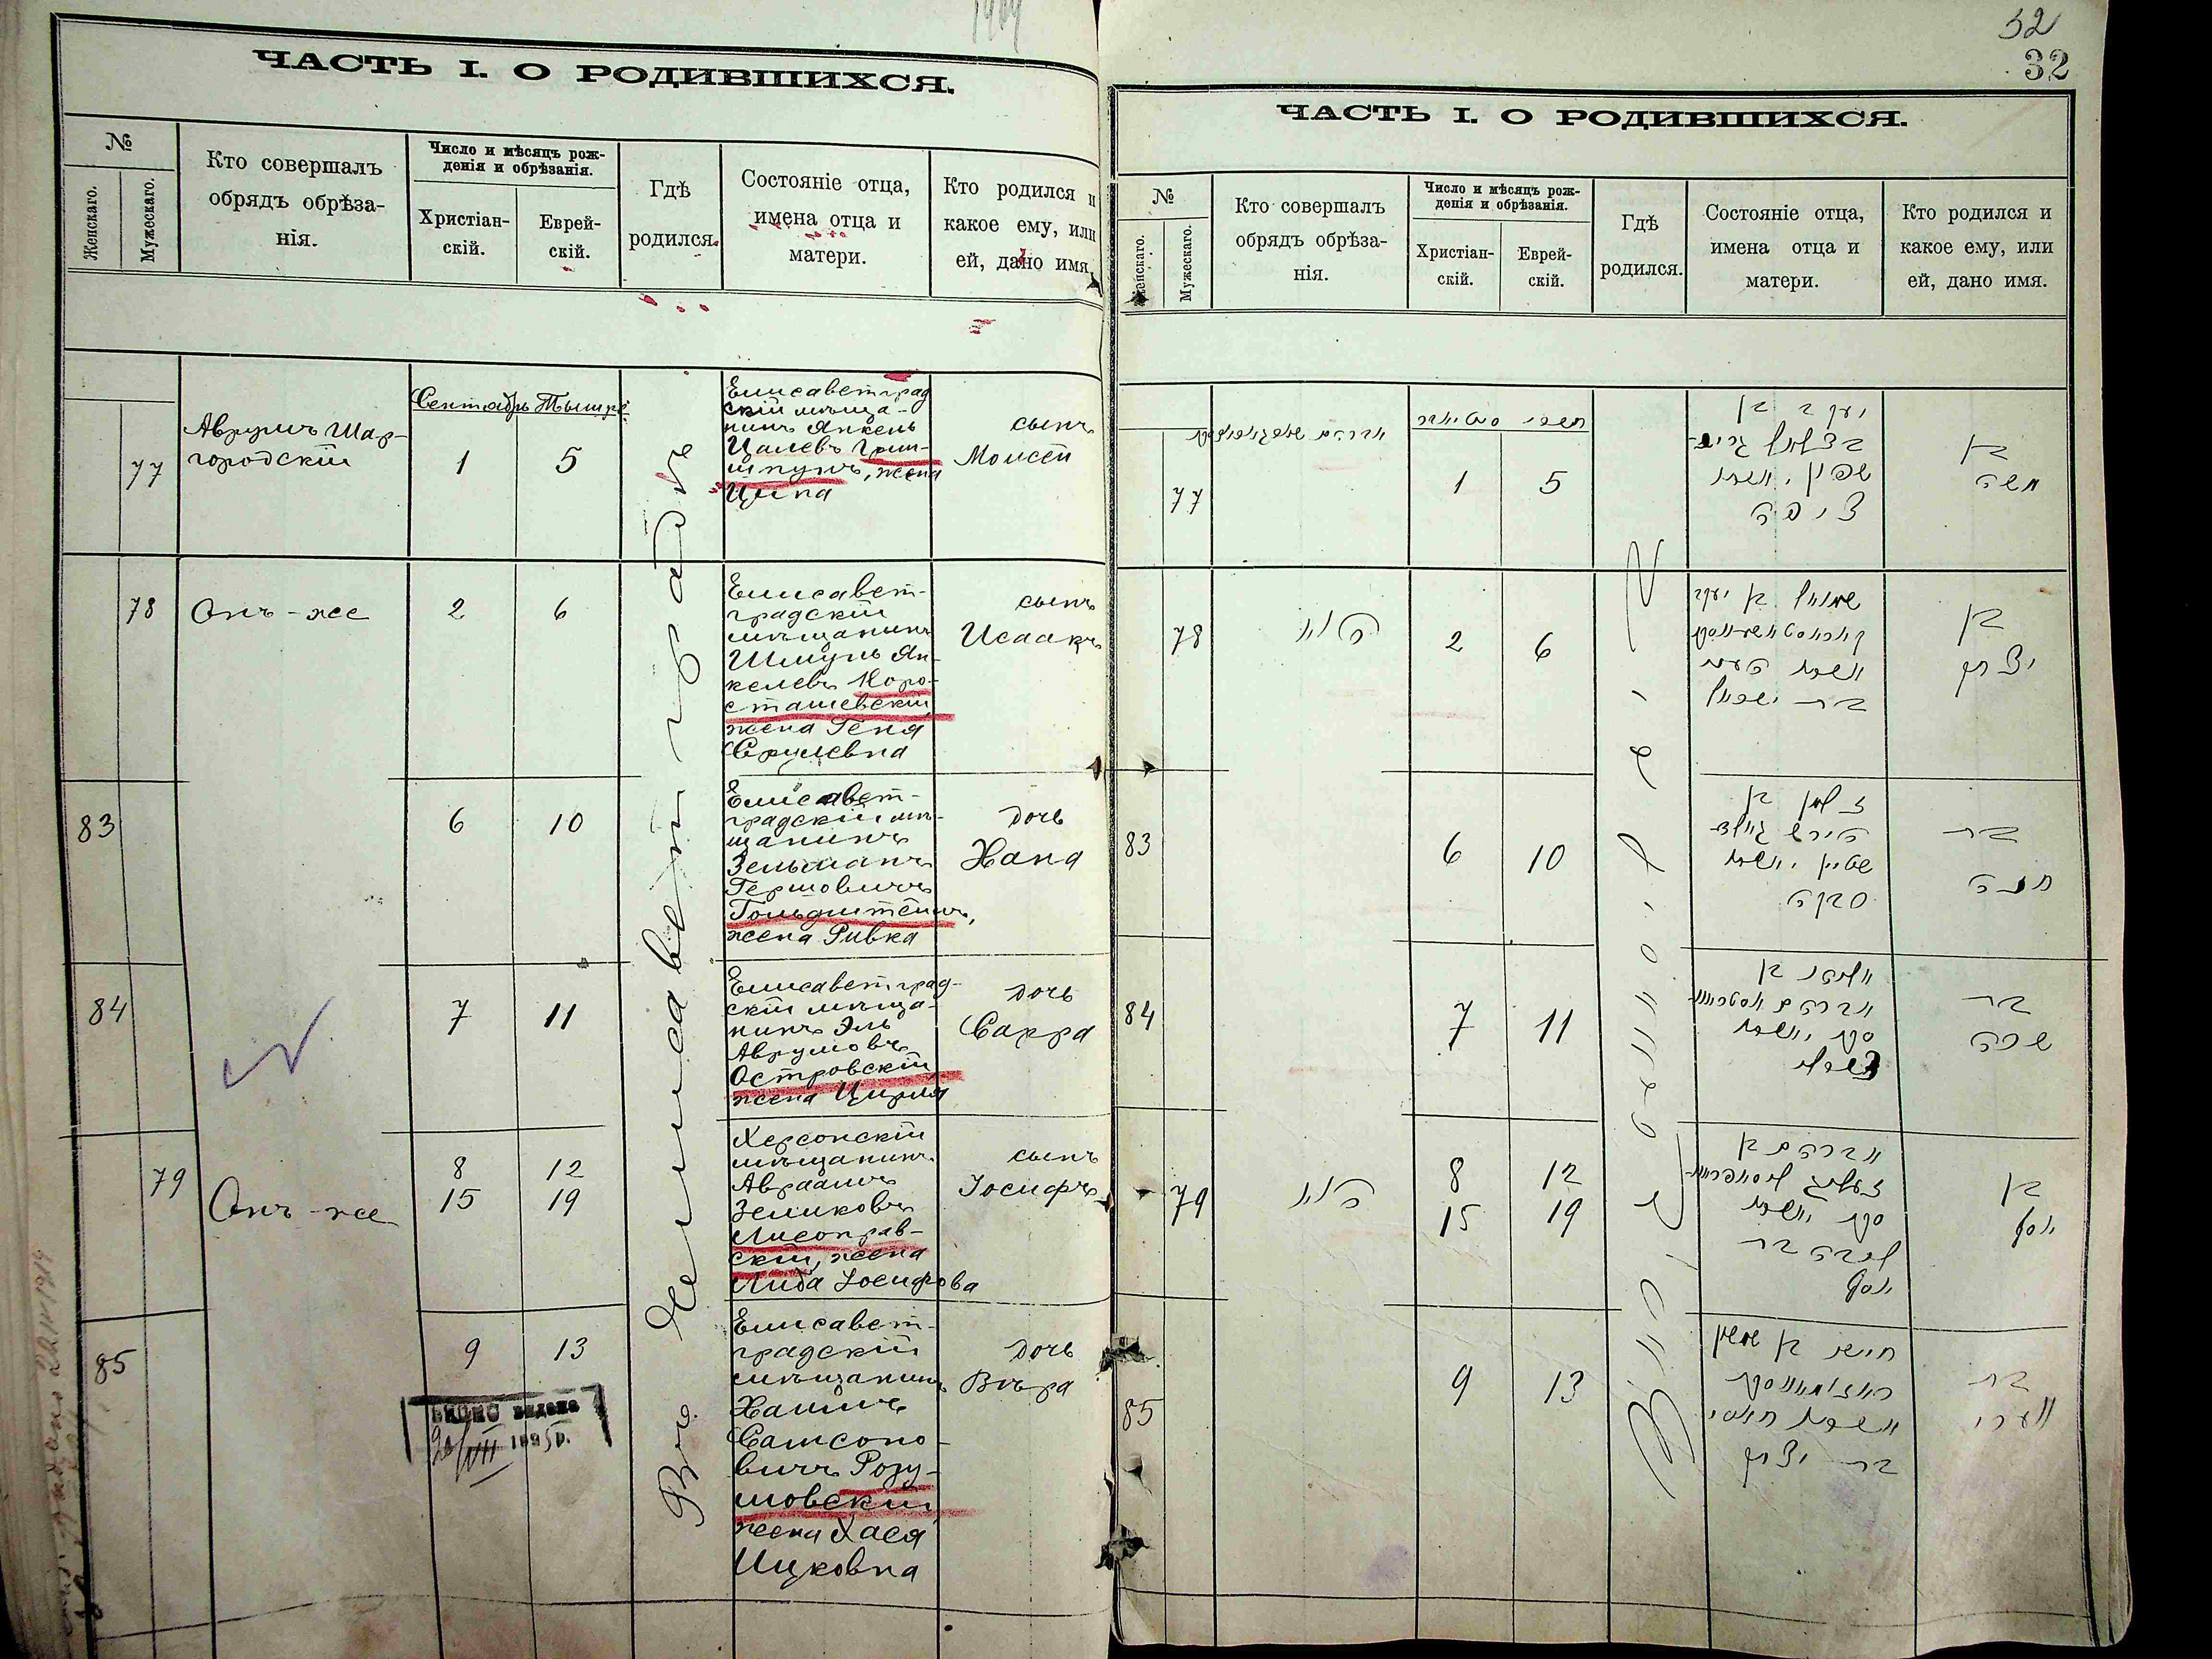 1904
ЧАСТЬ I. О РОДИВШИХСЯ.
№
Женскаго.
Мужескаго.
Кто совершалъ
обрядъ обрѣза-
нія.
Число и мѣсяцъ рож-
денія и обрѣзанія.
Христіан-
скій.
Еврей-
скій.
Гдѣ
родился.
Состояніе отца,
имена отца и
матери.
Кто родился и
какое ему, или
ей, дано имя.
Сентябрь Тышре
77
Аврумъ Шар-
городскій
1
5
Елисаветград
скій мѣща-
нинъ Янкель
Цалевъ Грин-
шпунъ, жена
Ципа
сынъ
Моисей
Въ Елисаветградѣ
78
Онъ-же
2
6
Елисавет-
градскій
мѣщанинъ
Шмуль Ян-
келевъ Коро-
сташевскій,
жена Геня
Срулевна
сынъ
Исаакъ
83
6
10
Елисавет-
градскій мѣ-
щанинъ
Зельманъ
Гершовичъ
Гольдштейнъ,
жена Ривка
дочь
Хана
84
7
11
Елисаветград-
скій мѣща-
нинъ Эль
Аврумовъ
Островскій,
жена Цирля
дочь
Сарра
79
Онъ-же
8
12
15
19
Херсонскій
мѣщанинъ
Авраамъ
Зеликовъ
скій, жена
Либа Іосифова
сынъ
Іосифъ
85
9
13
Елисавет-
градскій
мѣщанинъ
Хаимъ
Самсоно-
вичъ Розу-
мовскій
жена Хася
Ицковна
дочь
Вѣра
видана
20/VIII 1995р.
32
32
ЧАСТЬ I. О РОДИВШИХСЯ.
№
Женскаго.
Мужескаго.
Кто совершалъ
обрядъ обрѣза-
нія.
Число и мѣсяцъ рож-
денія и обрѣзанія.
Христіан-
скій.
Еврей-
скій.
Гдѣ
родился.
Состояніе отца,
имена отца и
матери.
Кто родился и
какое ему, или
ей, дано имя.
77
1
5
יעקב בן
ציפה
בן
משה
78
הנ״ל
2
6
שמואל בן יעקב
בת ישראל
בן
יצחק
83
6
10
זלמן בן
הירש גולד
שטיין ואשתו
רבקה
בת
חנה
84
7
11
אברהם
סקי ואשתו
בת
שרה
79
הנ״ל
8
12
15
19
אברהם בן
סקי ואשתו
יוסף
בן
יוסף
85
9
13
חיים בן שמשון
בת יצחק
בת
ווערי